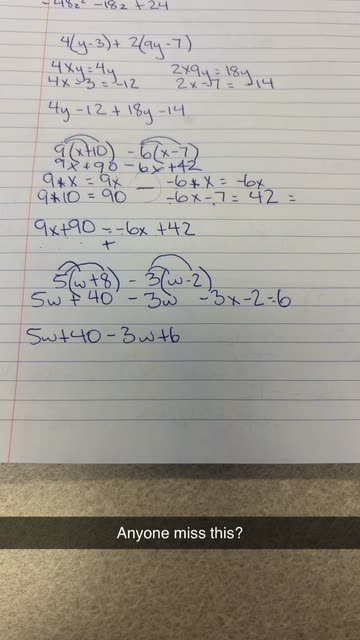 -48z² -18z + 24
4(y-3) + 2(9y-7)
4xy=4y 2x9y=18y
4x-3=-12 2x-7=-14
4y-12+18y-14
9(x+10) -6(x-7)
9x+90 -6x+42
9*x = 9x - -6*x = -6x
9*10 = 90 -6x-7 = 42 =
9x+90 - -6x +42
+
5(w+8) - 3(w-2)
5w + 40 - 3w -3x-2=6
5w+40-3w+6
Anyone miss this?